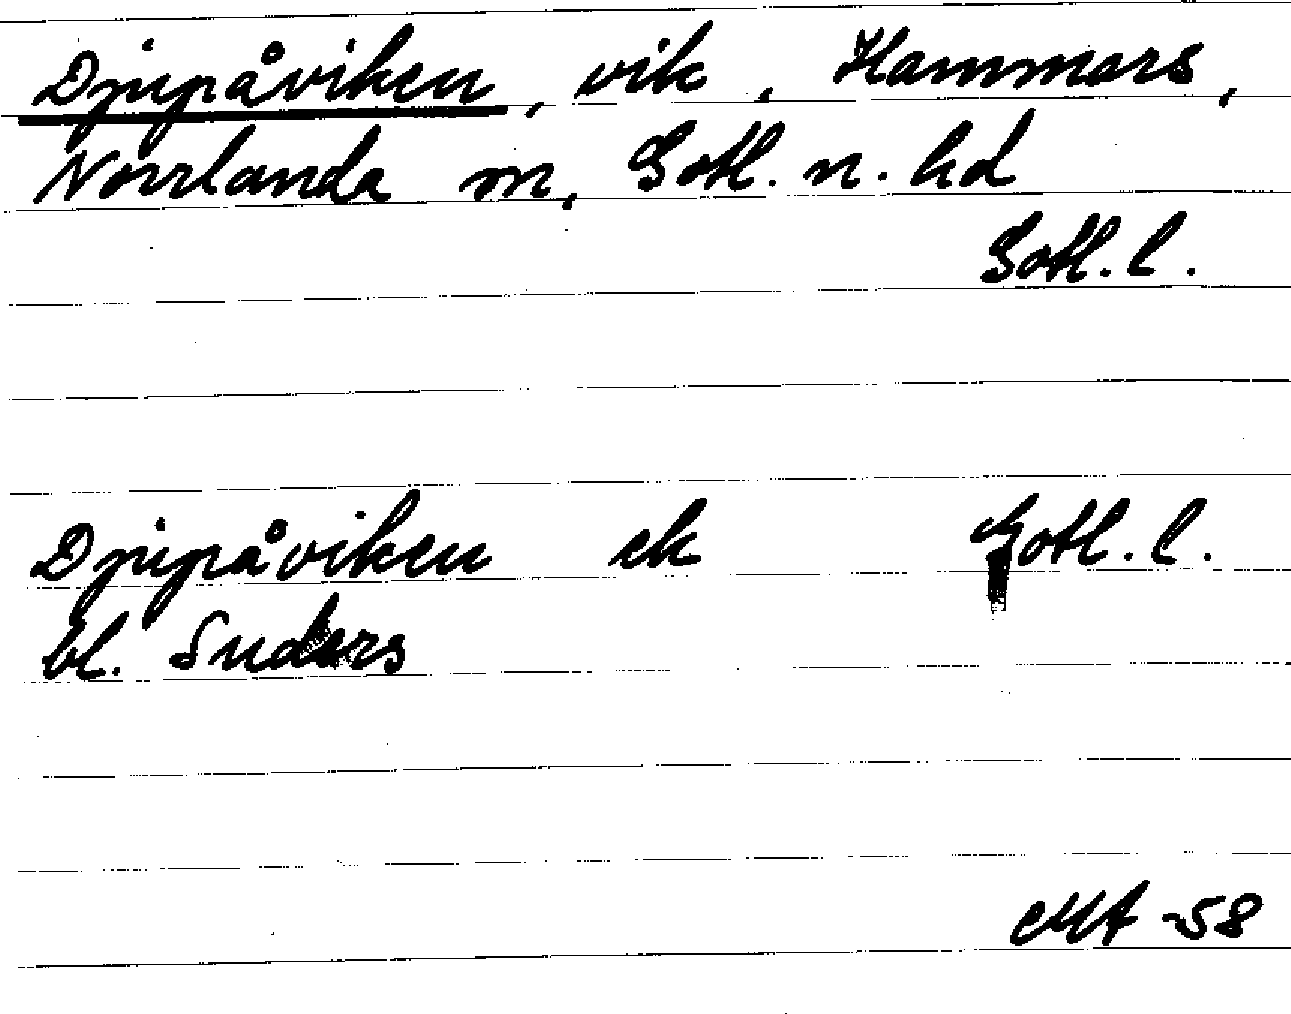 Djupåviken, vik, Hammars,
Norrlanda sn, Gotl. n. hd
Gotl. l.
Djupåviken ek Gotl. l.
bl. Suders
MA -58